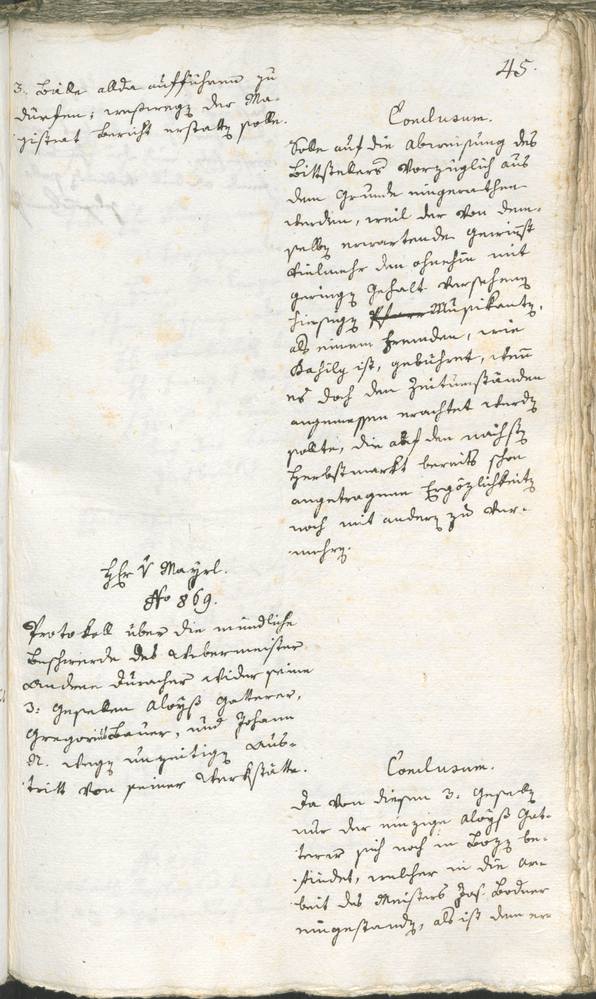 45.
3. Bälle allda aufführen zu
dürfen; weßwegen der Ma-
gistrat Bericht erstatten solle.
Conclusum.
Solle auf die Abweisung des
Bittstellers vorzüglich aus
dem Grunde eingerathen
werden, weil der von dem-
selben erwartende Gewinnst
vielmehr den ohnehin mit
geringen Gehalt versehenen
hiesigen Musikanten,
als einem Fremden, wie
ist, gebühret, wenn
es doch den Zeitumständen
angemessen erachtet werden
sollte, die auf den nächsten
Herbstmarkt bereits schon
angetragenen Ergözlichkeiten
noch mit andern zu ver-
mehren.
Hr v Mayrl.
No 869.
Protokoll über die mündliche
Beschwerde des Webermeister
Andree Duracher wider seine
3: Gesellen Aloyß Gatterer,
Gregori Bauer, und Johann
N. wegen unzeitigen Aus-
tritt von seiner Werkstätte.
Conclusum.
Da von diesen 3: Gesellen
nur der einzige Aloyß Gat-
terer sich noch in Bozen be-
findet, welcher in die Ar-
beit des Meisters Jos. Bodner
eingestanden, als ist dem er-